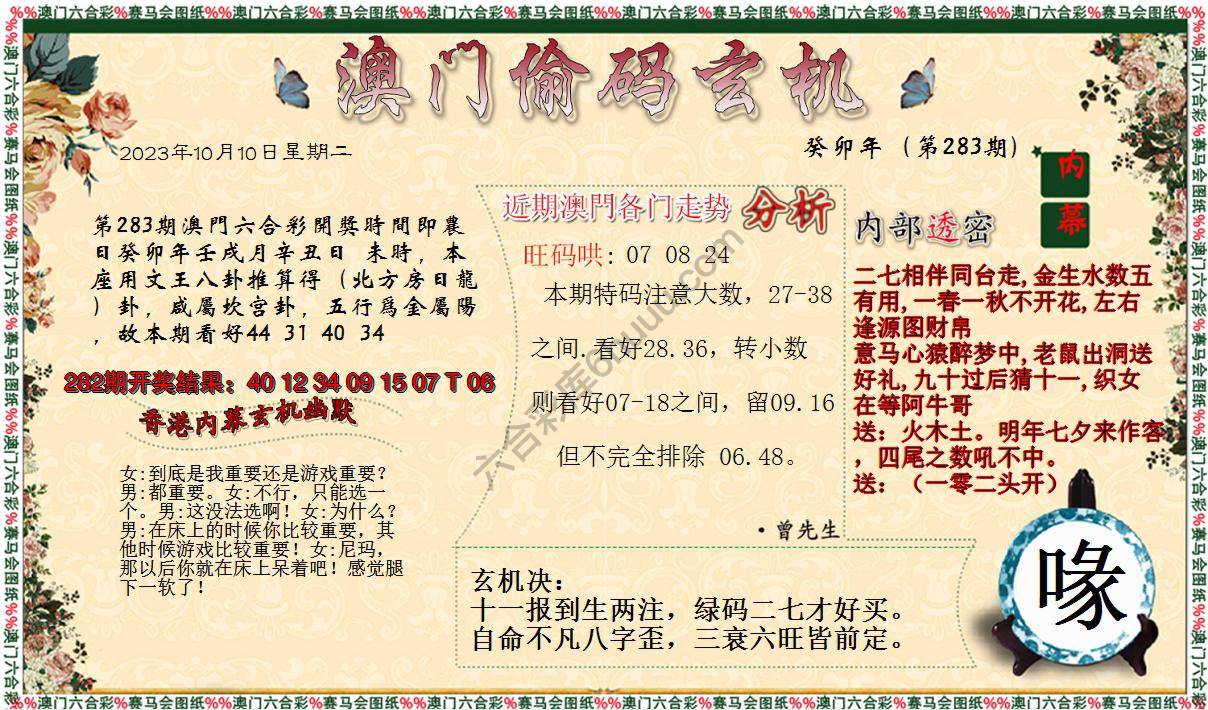 %%澳门六合彩%赛马会图纸%%澳门六合彩%赛马会图纸%%澳门六合彩%赛马会图纸%%澳门六合彩%赛马会图纸%%澳门六合彩%赛马会图纸%%澳门六合彩%赛马会图纸%%
澳门偷码玄机
2023年10月10日星期二
癸卯年（第283期）
内幕
第283期澳門六合彩開獎時間即農
日癸卯年壬戌月辛丑日 未時，本
座用文王八卦推算得（北方房日龍
）卦，咸屬坎宫卦，五行爲金屬陽
，故本期看好44 31 40 34
282期开奖结果：40 12 34 09 15 07 T 06
香港内幕玄机幽默
女:到底是我重要还是游戏重要?
男:都重要。女:不行，只能选一
个。男:这没法选啊！女:为什么?
男:在床上的时候你比较重要，其
他时候游戏比较重要！女:尼玛，
那以后你就在床上呆着吧！感觉腿
下一软了!
近期澳門各门走势 分析
旺码哄: 07 08 24
本期特码注意大数，27-38
之间.看好28.36，转小数
则看好07-18之间，留09.16
但不完全排除 06.48。
·曾先生
内部透密
二七相伴同台走,金生水数五
有用,一春一秋不开花,左右
逢源图财帛
意马心猿醉梦中,老鼠出洞送
好礼,九十过后猜十一,织女
在等阿牛哥
送：火木土。明年七夕来作客
，四尾之数吼不中。
送：（一零二头开）
玄机决：
十一报到生两注，绿码二七才好买。
自命不凡八字歪，三衰六旺皆前定。
喙
%%澳门六合彩%赛马会图纸%%澳门六合彩%赛马会图纸%%澳门六合彩%赛马会图纸%%澳门六合彩%赛马会图纸%%澳门六合彩%赛马会图纸%%澳门六合彩%赛马会图纸%%